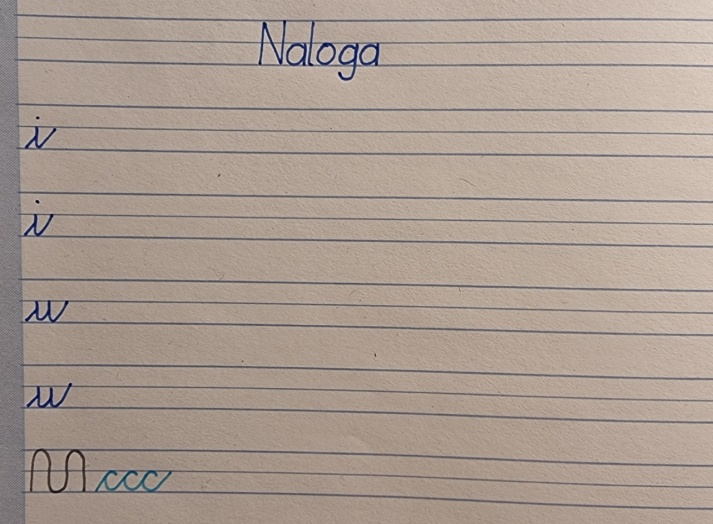 Naloga
i
i
u
u
ccc